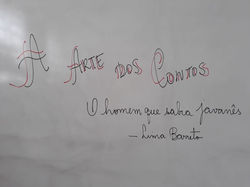 A ARTE DOS CONTOS
O homem que sabia javanês
- Lima Barreto